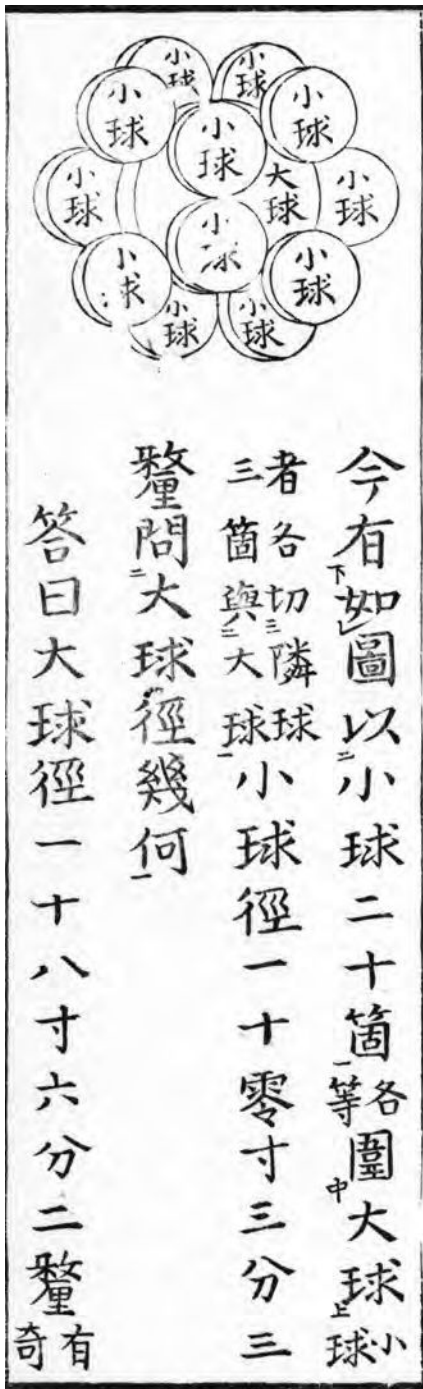 小球
小球
小球
小球
小球
大球
小球
小球
小
小
小球
小球
小球
今有如圖以小球二十箇各等圍大球小球
者各切隣球三箇與大球小球徑一十零寸三分三
釐問大球徑幾何
答曰大球徑一十八寸六分二釐有奇